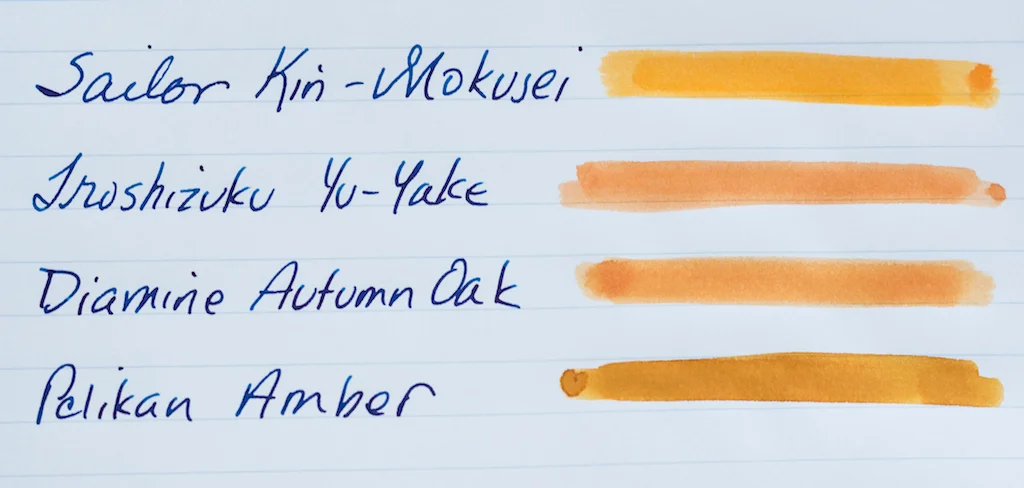 Sailor Kin-Mokusei
Iroshizuku Yu-Yake
Diamine Autumn Oak
Pelikan Amber